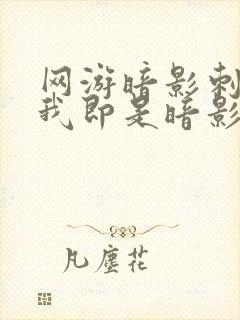 网游暗影刺
我即是暗影
凡尘花